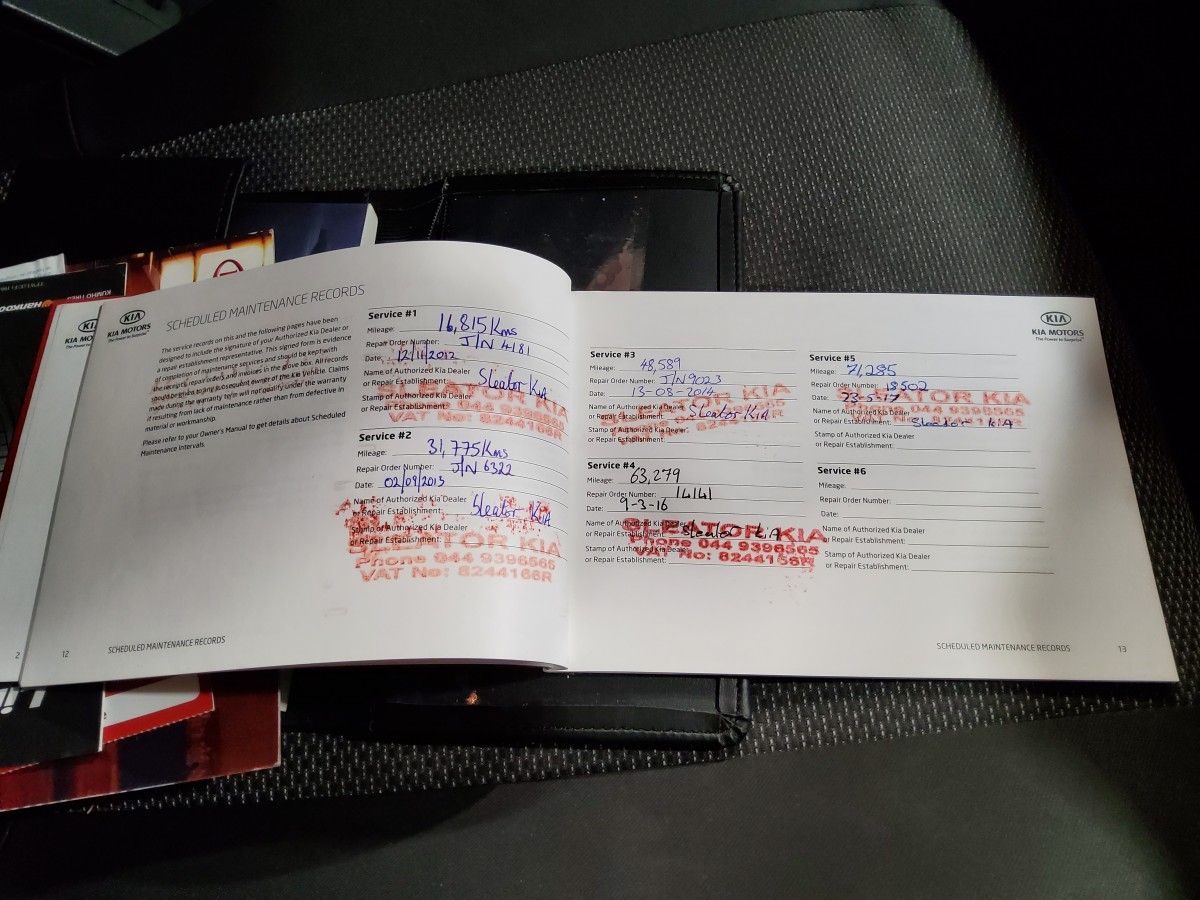 KIA
KIA MOTORS
The Power to Surprise
SCHEDULED MAINTENANCE RECORDS
The service records on this and the following pages have been
designed to include the signature of your Authorized Kia Dealer or
a repair establishment representative. This signed form is evidence
of completion of maintenance services and should be kept with
the receipts, repair orders and invoices in the glove box. All records
should be given to any subsequent owner of the Kia Vehicle. Claims
made during the warranty term will not qualify under the warranty
if resulting from lack of maintenance rather than from defective in
material or workmanship.
Please refer to your Owner's Manual to get details about Scheduled
Maintenance Intervals.
Service #1
Mileage: 16,815 Kms
Repair Order Number: J/N 4181
Date: 12/11/2012
Name of Authorized Kia Dealer
or Repair Establishment: Sleator KiA
Stamp of Authorized Kia Dealer
or Repair Establishment:
SLEATOR KIA
Phone 044 9396565
VAT No: 8244166R
Service #2
Mileage: 31,775 Kms
Repair Order Number: J/N 6322
Date: 02/09/2013
Name of Authorized Kia Dealer
or Repair Establishment: Sleator KiA
Stamp of Authorized Kia Dealer
or Repair Establishment:
SLEATOR KIA
Phone 044 9396565
VAT No: 8244166R
12
SCHEDULED MAINTENANCE RECORDS
KIA
KIA MOTORS
The Power to Surprise
Service #3
Mileage: 48,589
Repair Order Number: J/N 9023
Date: 13-08-2014
Name of Authorized Kia Dealer
or Repair Establishment: Sleator KiA
Stamp of Authorized Kia Dealer
or Repair Establishment:
SLEATOR KIA
Service #4
Mileage: 63,279
Repair Order Number: 14141
Date: 9-3-16
Name of Authorized Kia Dealer
or Repair Establishment: Sleator KiA
Stamp of Authorized Kia Dealer
or Repair Establishment:
SLEATOR KIA
Phone 044 9396565
VAT No: 8244166R
Service #5
Mileage: 71,285
Repair Order Number: 18502
Date: 23-5-17
Name of Authorized Kia Dealer
or Repair Establishment: Sleator KiA
Stamp of Authorized Kia Dealer
or Repair Establishment:
SLEATOR KIA
044 9396565
Service #6
Mileage:
Repair Order Number:
Date:
Name of Authorized Kia Dealer
or Repair Establishment:
Stamp of Authorized Kia Dealer
or Repair Establishment:
SCHEDULED MAINTENANCE RECORDS
13
KUMHO TIRES
2